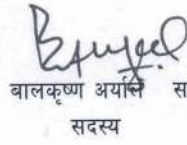 बालकृष्ण अर्याल स
सदस्य